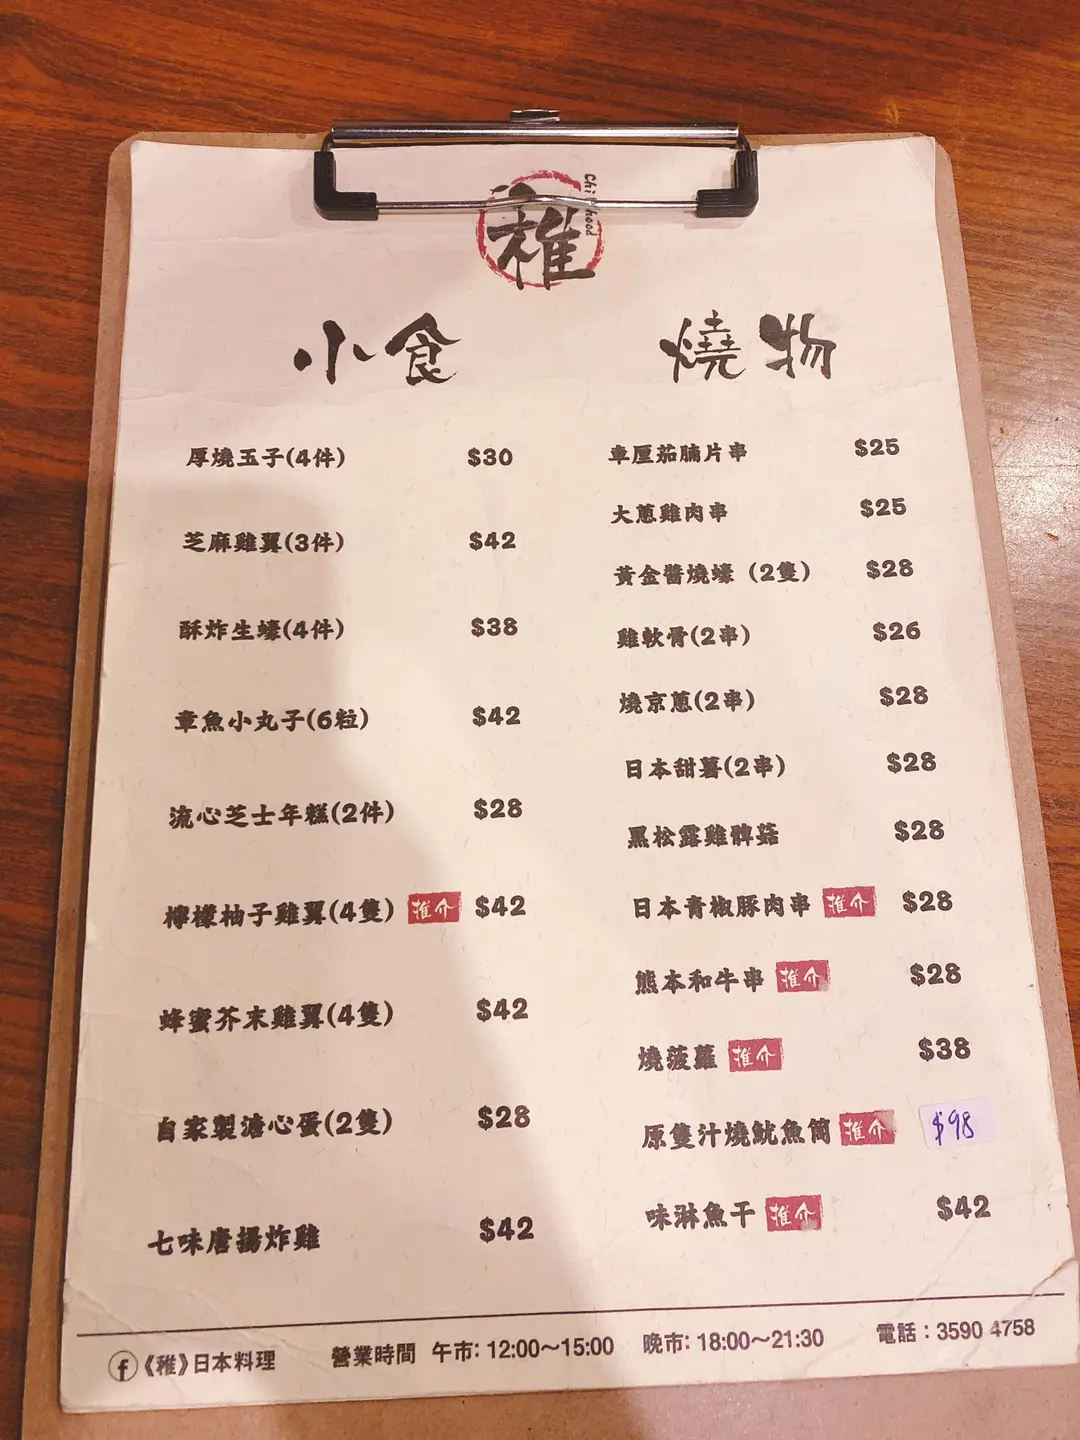 稚
小食
厚燒玉子(4件) $30
芝麻雞翼(3件) $42
酥炸生蠔(4件) $38
章魚小丸子(6粒) $42
流心芝士年糕(2件) $28
檸檬柚子雞翼(4隻) 推介 $42
蜂蜜芥末雞翼(4隻) $42
自家製溏心蛋(2隻) $28
七味唐揚炸雞 $42
燒物
車厘茄腩片串 $25
大蔥雞肉串 $25
黃金醬燒蠔（2隻） $28
雞軟骨(2串) $26
燒京蔥(2串) $28
日本甜薯(2串) $28
黑松露雞髀菇 $28
日本青椒豚肉串 推介 $28
熊本和牛串 推介 $28
燒菠蘿 推介 $38
原隻汁燒魷魚筒 推介 $98
味淋魚干 推介 $42
《稚》日本料理 營業時間 午市: 12:00～15:00 晚市: 18:00～21:30 電話：3590 4758